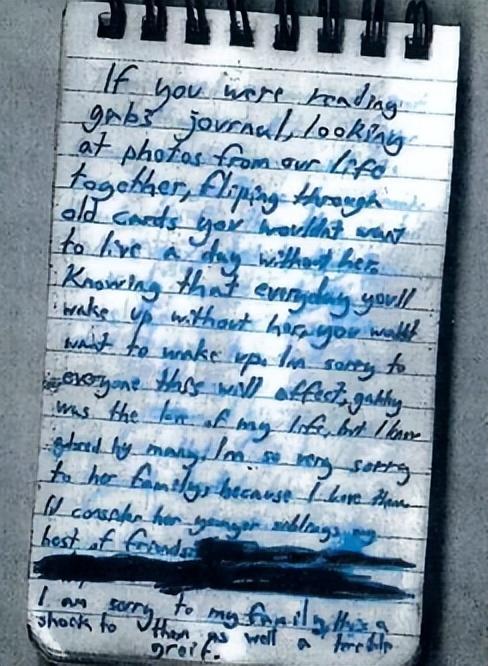 If you were reading
gabs journal, looking
at photos from our life
together, fliping through
old cards you wouldnt want
to live a day without her.
Knowing that everyday you'll
wake up without her, you wouldnt
want to wake up. Im sorry to
everyone this will affect, gabby
was the love of my life, but I know
adored by many. Im so very sorry
to her family, because I love them.
I'd consider her younger siblings my
best of friends
I am sorry to my family, this is a
shock to them as well a terrible
greif.